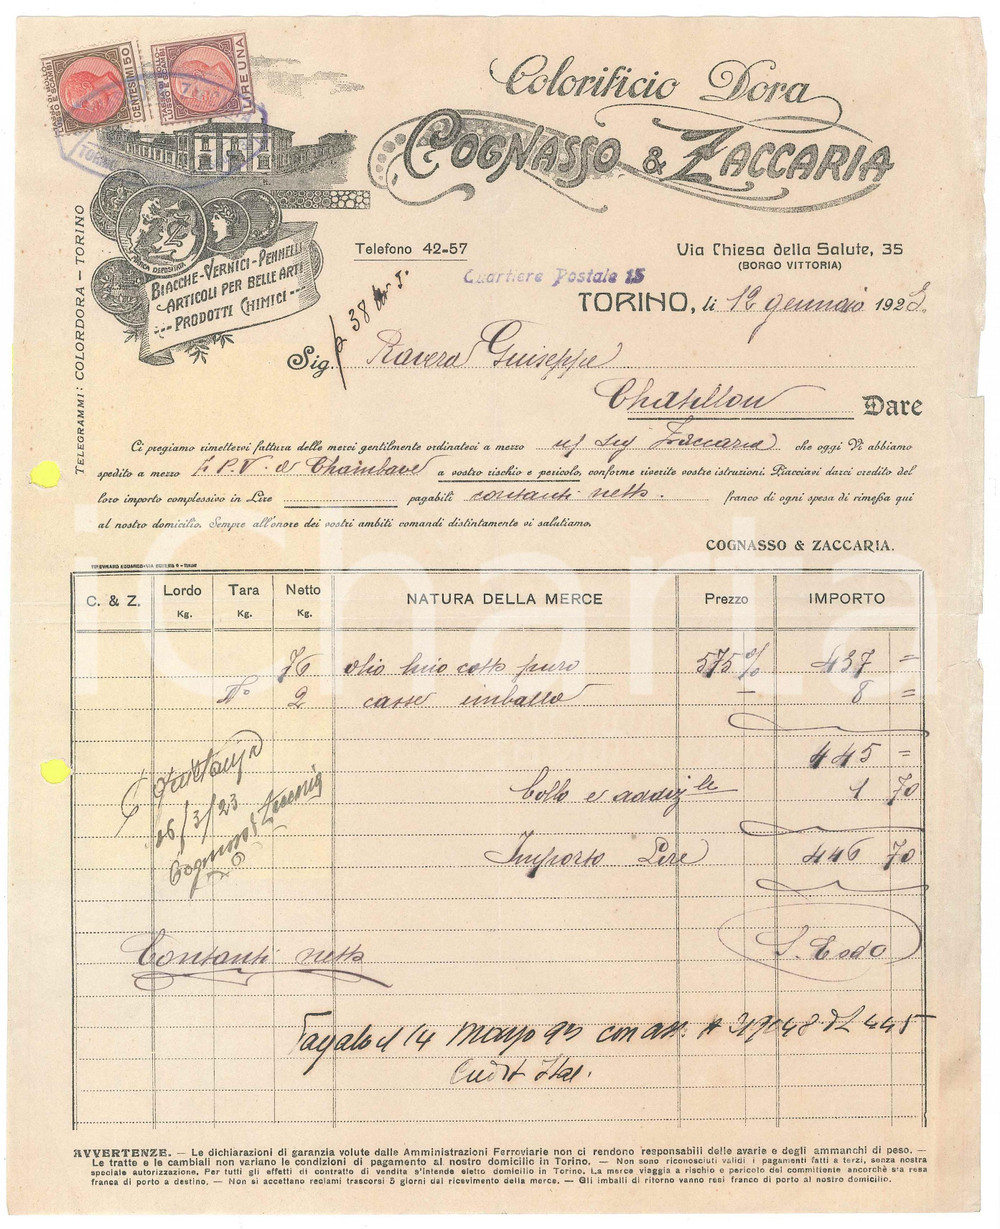 TASSA DI BOLLO LUSSO E SCAMBI
CENTESIMI 50
TASSA DI BOLLO LUSSO E SCAMBI
LIRE UNA
TORINO
Colorificio Dora
COGNASSO & ZACCARIA
Telefono 42-57
Via Chiesa della Salute, 35
(BORGO VITTORIA)
Quartiere Postale 15
TORINO, li 12 gennaio 1923.
MARCA DEPOSITATA
BIACCHE - VERNICI - PENNELLI
ARTICOLI PER BELLE ARTI
PRODOTTI CHIMICI
TELEGRAMMI: COLORDORA - TORINO
Sig. Ravera Guiseppe
Chatillon Dare
Ci pregiamo rimettervi fattura delle merci gentilmente ordinateci a mezzo n/ sig Zaccaria che oggi Vi abbiamo
spedito a mezzo P. V. a Chambave a vostro rischio e pericolo, conforme riverite vostre istruzioni. Piacciavi darci credito del
loro importo complessivo in Lire pagabili contanti netto. franco di ogni spesa di rimessa qui
al nostro domicilio. Sempre all'onore dei vostri ambiti comandi distintamente vi salutiamo.
COGNASSO & ZACCARIA.
C. & Z. Lordo Kg. Tara Kg. Netto Kg. NATURA DELLA MERCE Prezzo IMPORTO
76 olio lino cotto puro 575 % 437 =
N° 2 casse imballo - 8 =
445 =
Bollo e addiz.le 1 70
Importo Lire 446 70
P Quietanza
16/3/23
Cognasso & Zaccaria
Contanti netto
S. E. od O.
Pagato il 14 Marzo 23 con ass. N 317048 di L 445
Credit Ital.
AVVERTENZE. — Le dichiarazioni di garanzia volute dalle Amministrazioni Ferroviarie non ci rendono responsabili delle avarie e degli ammanchi di peso. —
Le tratte e le cambiali non variano le condizioni di pagamento al nostro domicilio in Torino. — Non sono riconosciuti validi i pagamenti fatti a terzi, senza nostra
speciale autorizzazione. Per tutti gli effetti di contratto di vendita s'intende eletto domicilio in Torino. La merce viaggia a rischio e pericolo del committente ancorchè sia resa
franca di porto a destino. — Non si accettano reclami trascorsi 5 giorni dal ricevimento della merce. — Gli imballi di ritorno vanno resi franco di porto al nostro domicilio.
iCharta